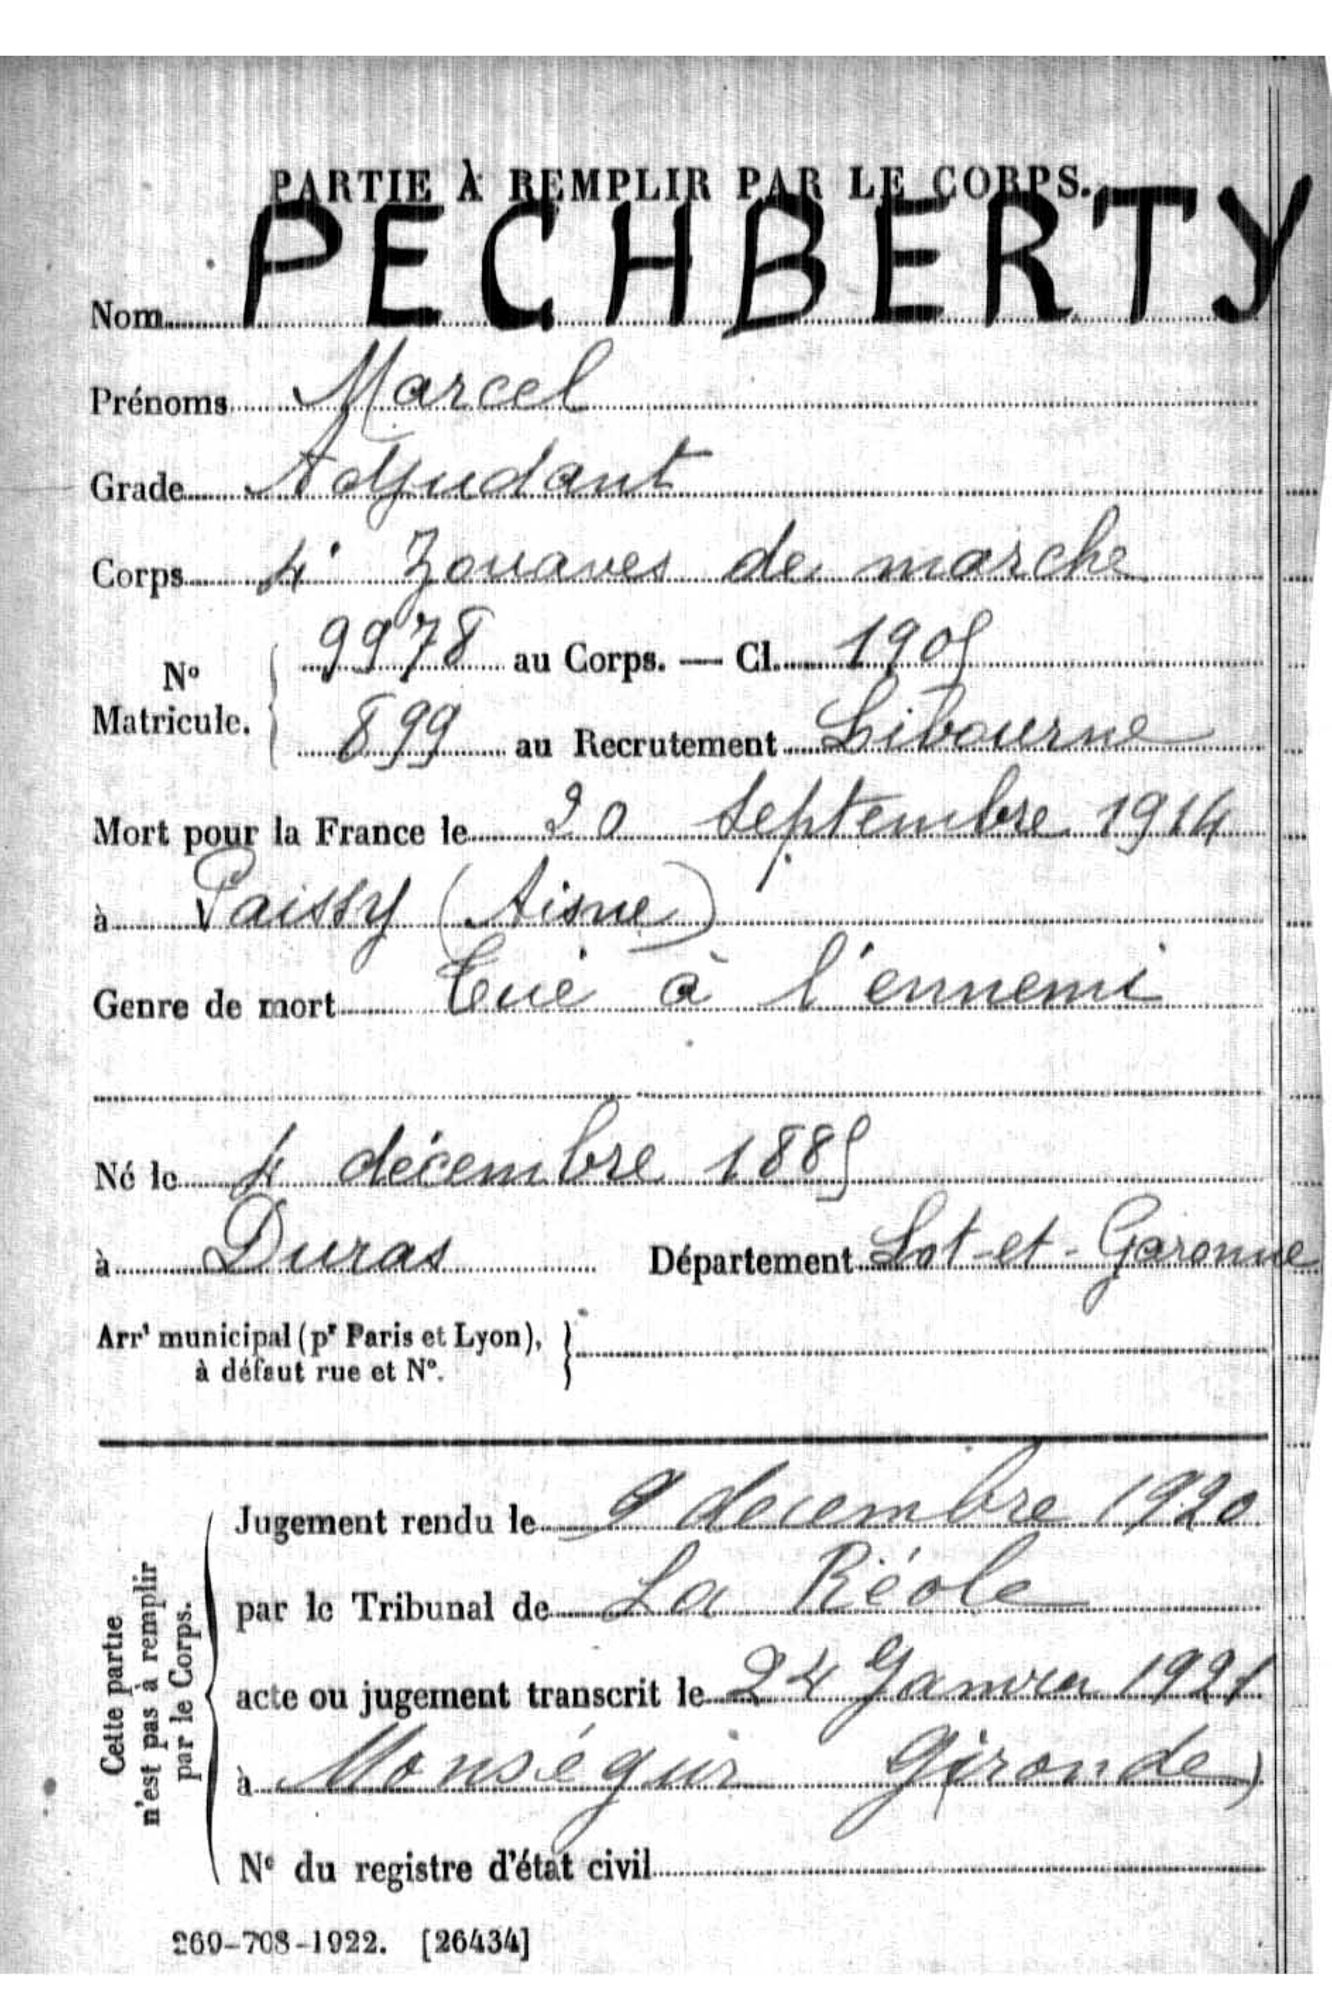 PARTIE À REMPLIR PAR LE CORPS.
Nom PECHBERTY
Prénoms Marcel
Grade Adjudant
Corps 4e Zouaves de marche
No Matricule. { 9978 au Corps. — Cl. 1905
899 au Recrutement Libourne
Mort pour la France le 20 septembre 1914
à Paissy (Aisne)
Genre de mort Tué à l'ennemi
Né le 4 décembre 1885
à Duras Département Lot-et-Garonne
Arrt municipal (pr Paris et Lyon), }
à défaut rue et No.
Cette partie
n'est pas à remplir
par le Corps.
Jugement rendu le 9 decembre 1920
par le Tribunal de La Réole
acte ou jugement transcrit le 24 Janvier 1921
à Monségur (Gironde)
No du registre d'état civil
260-708-1922. [26434]